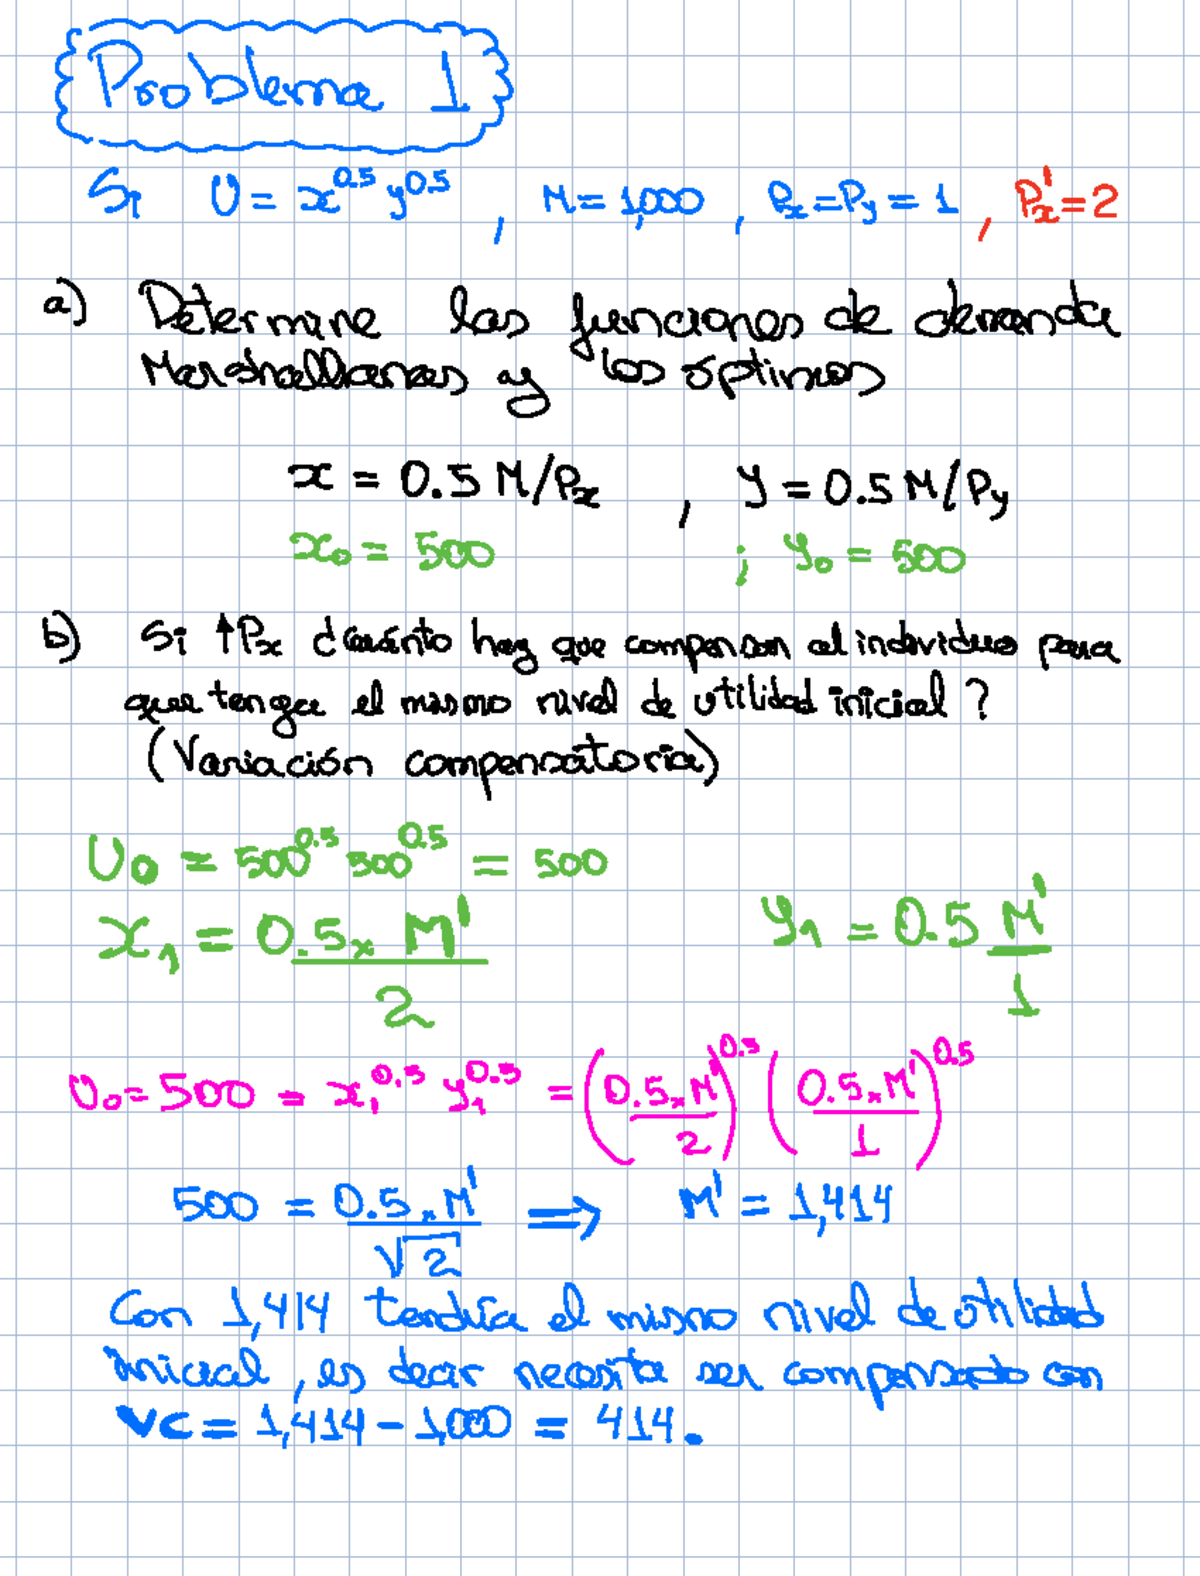 Problema 1
Si U = x^0.5 y^0.5 , M = 1,000 , Px = Py = 1 , Px' = 2
a) Determine las funciones de demanda
Marshallianas y los óptimos
x = 0.5 M/Px , y = 0.5 M/Py
x₀ = 500 ; y₀ = 500
b) Si ↑Px ¿Cuánto hay que compensar al individuo para
que tenga el mismo nivel de utilidad inicial ?
(Variación compensatoria)
U₀ = 500^0.5 500^0.5 = 500
x₁ = 0.5 x M' / 2 y₁ = 0.5 M' / 1
U₀ = 500 = x₁^0.5 y₁^0.5 = (0.5 x M' / 2)^0.5 (0.5 x M' / 1)^0.5
500 = 0.5 x M' / √2 ⟹ M' = 1,414
Con 1,414 tendría el mismo nivel de utilidad
inicial, es decir necesita ser compensado con
VC = 1,414 - 1,000 = 414.